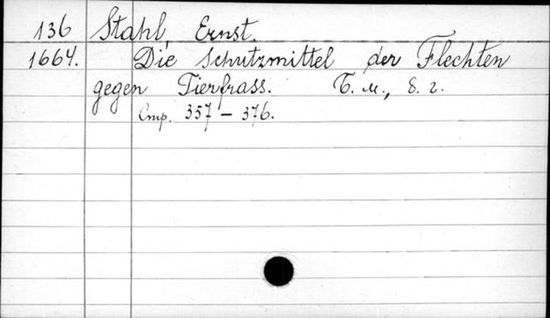 136 Stahl, Ernst.
1664. Die Schutzmittel der Flechten
gegen Tierfrass. Т. м., S. 2.
Стр. 357 – 376.